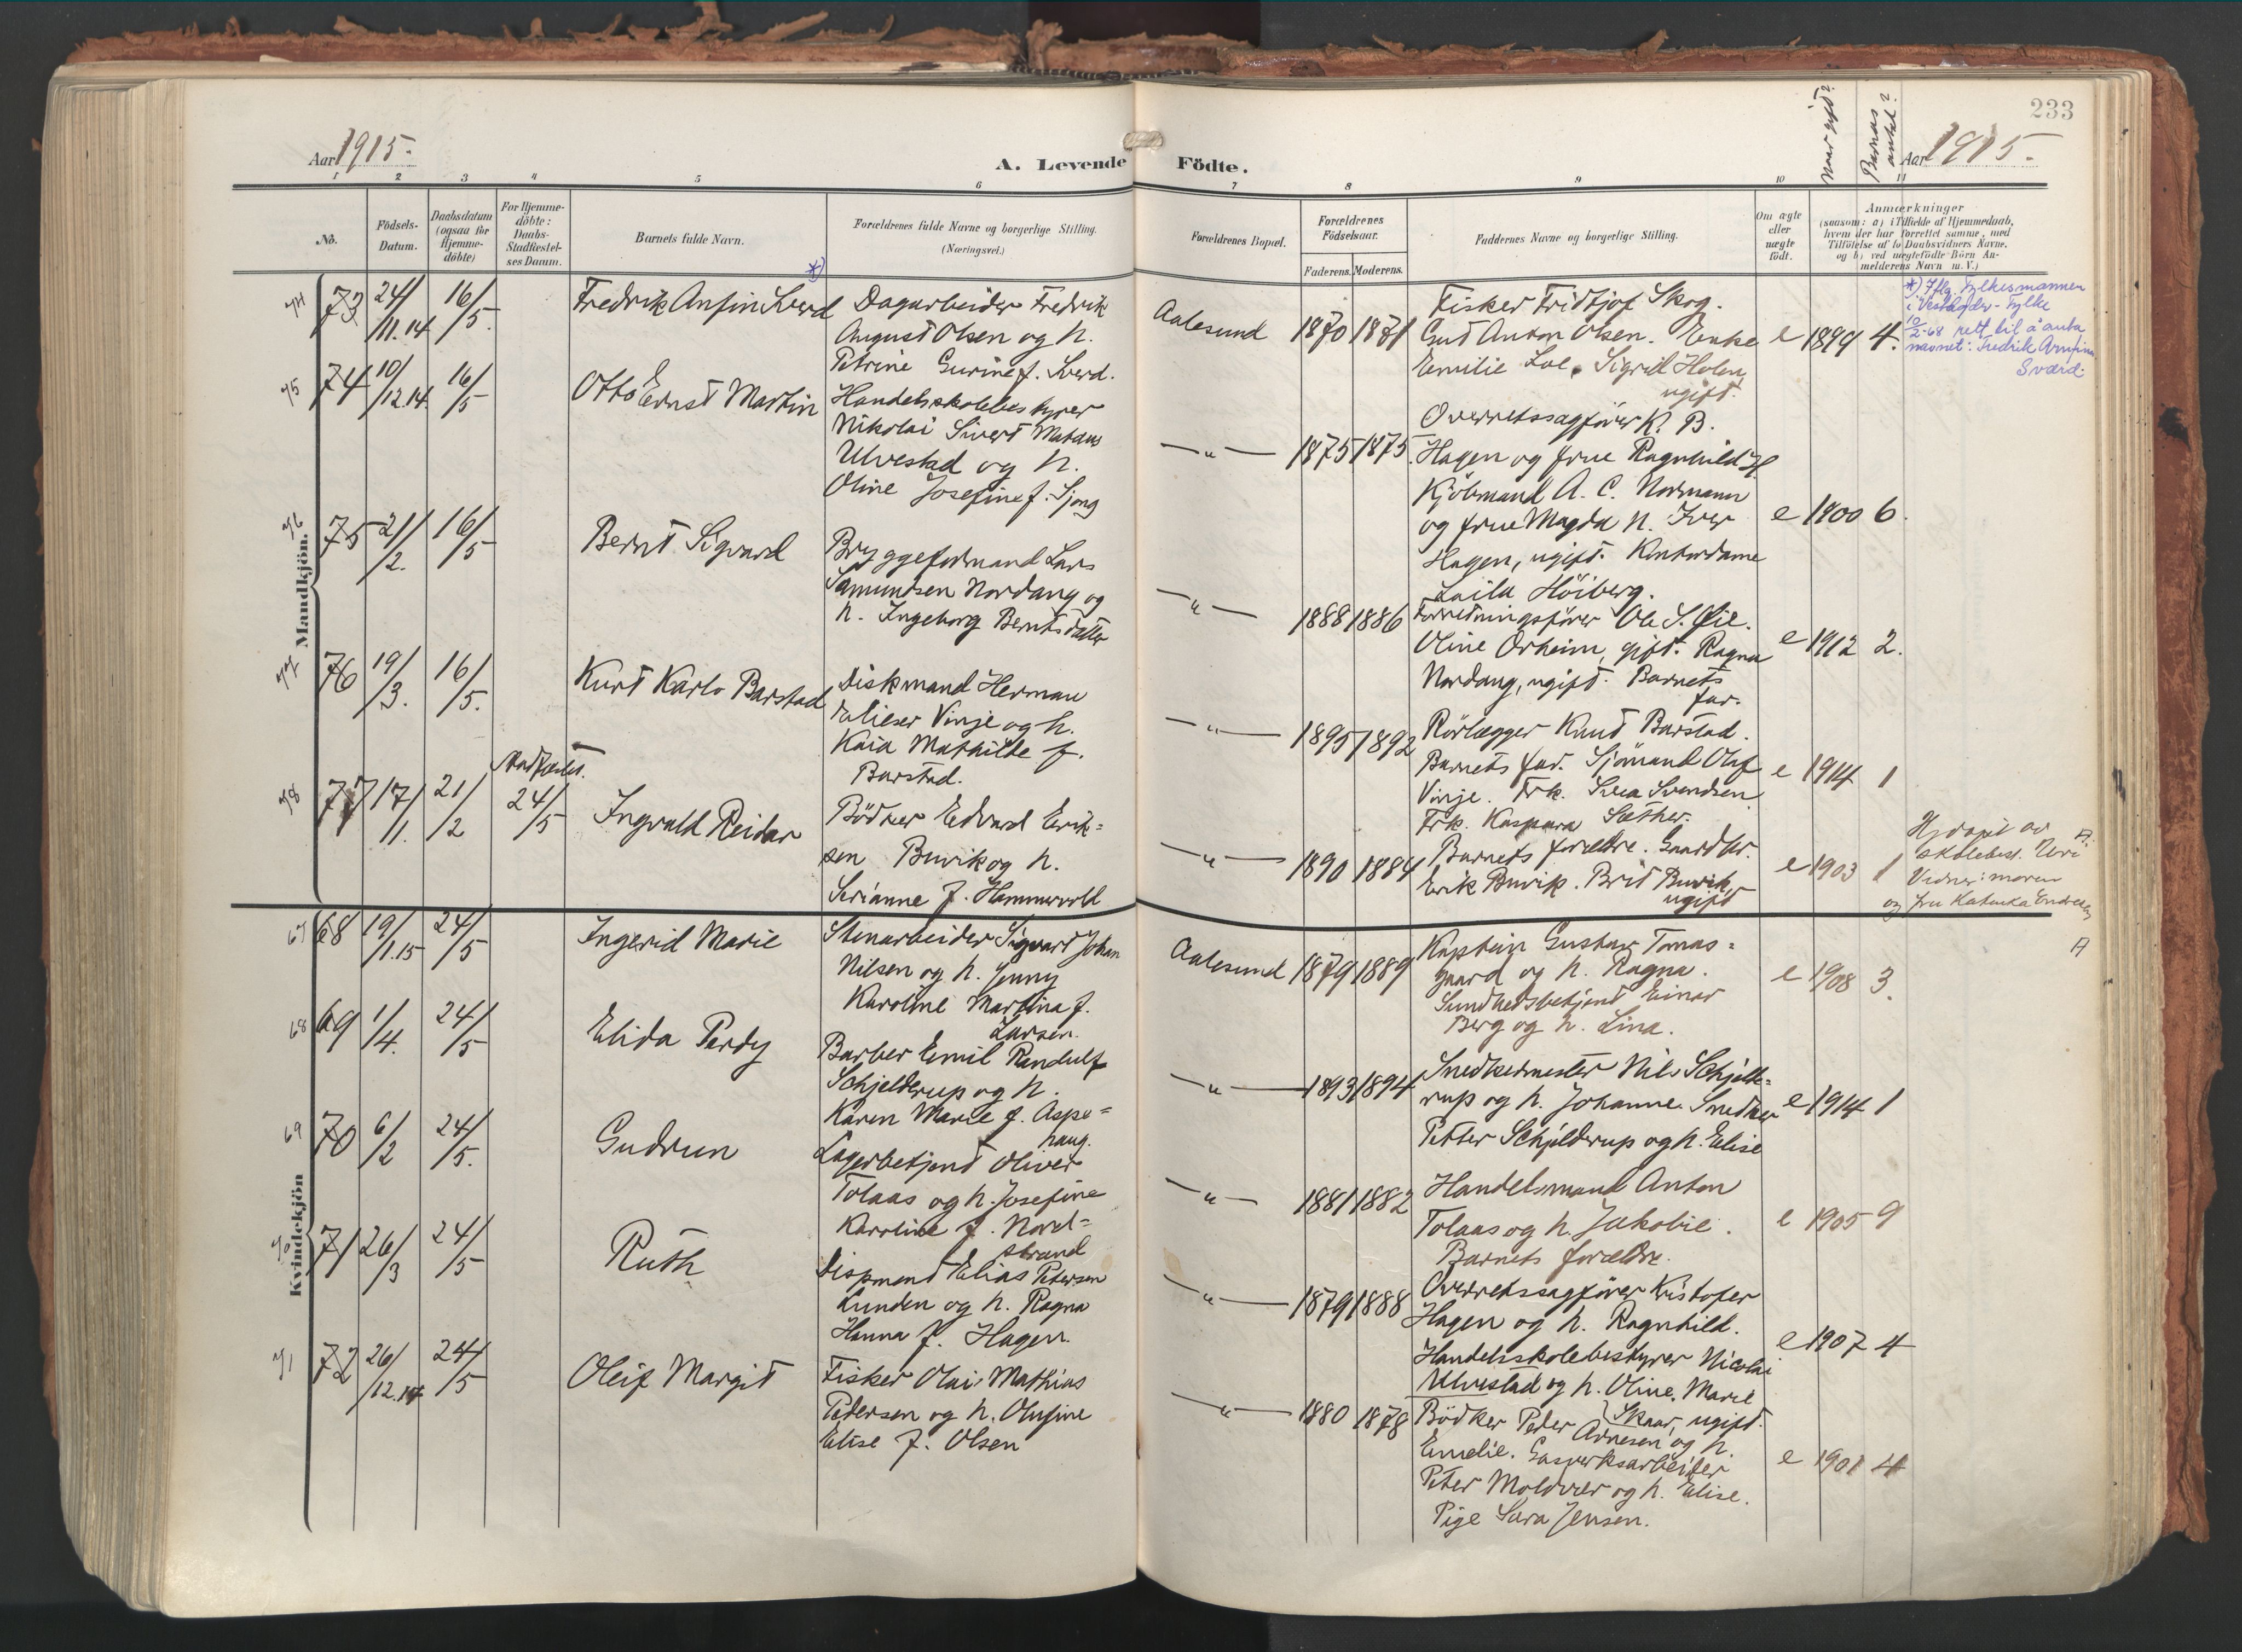 233
Aar 1915.
A. Levende Födte.
Naar gift?
Barnas antal?
Aar 1915.
1 2 3 4 5 6 7 8 9 10 11
No.
Födsels-Datum.
Daabsdatum (ogsaa for Hjemmedöbte)
For Hjemmedöbte: Daabs-Stadfæstelses Datum.
Barnets fulde Navn.
Forældrenes fulde Navne og borgerlige Stilling.
(Næringsvei.)
Forældrenes Bopæl.
Forældrenes Födselsaar.
Faderens. Moderens.
Faddernes Navne og borgerlige Stilling.
Om ægte eller uægte födt.
Anmærkninger
(saasom: a) i Tilfælde af Hjemmedaab,
hvem der har forrettet samme, med
Tilföielse af to Daabsvidners Navne.
og b) ved uægtefödte Börn Anmelderens Navn m. V.)
Mandkjön.
74 73 24/11.14 16/5. Fredrik Anfin Sverd *)
Dagarbeider Fredrik
August Olsen og h.
Petrine Gurine f. Sverd.
Aalesund 1870 1871
Fisker Fridtjof Skog.
Gut Anton Olsen. Enke
Emilie Loe. Sigrid Holen,
ugift.
e 1899 4.
*) Iflg. Fylkesmannen
i Vest-Agder-Fylke
10/2-68 rett til å anta
navnet: Fredrik Arnfinn
Sværd
75 74 10/12.14. 16/5 Otto Ernst Martin
Handelsskolebestyrer
Nikolai Sivert Mataus
Ulvestad og h.
Oline Josefine f. Sjong
—"— 1875 1875.
Overretssagförer K. B.
Hagen og frue Ragnhild H.
Kjöbmand A. C. Normann
og frue Magda N. Iver
Hagen, ugift. Kontordame
Laila Höiberg.
e 1900 6.
76 75 21/2. 16/5 Bernt Sigvard
Bryggeformand Lars
Samundsen Nordang og
h. Ingeborg Berntsdatter
—"— 1888 1886
Forretningsförer Ole S. Øie.
Oline Orheim, gift. Ragna
Nordang, ugift. Barnets
far.
e 1912 2.
77 76 19/3. 16/5. Kurt Karlo Barstad
Diskmand Herman
Elieser Vinje og h.
Kaia Mathilde f.
Barstad.
—"— 1895 1892
Rörlægger Knut Barstad.
Barnets far. Sjömand Oluf
Vinje. Frk. Svea Svendsen
Frk. Kaspara Sæther.
e 1914 1
78 77 17/1. 21/2 Stadfæstet. 24/5 Ingvald Reidar
Bödker Edvard Erik-
sen Buvik og h.
Serianne f. Hammervold
—"— 1890 1884
Barnets forældre. Gaardbr.
Erik Buvik. Brit Buvik,
ugift
e 1903 1
Hj.döpt av
skolebest. Uri
Vidner: moren
og fru Katinka Endresen
A.
Kvindekjön
67 68 19/1.15 24/5 Ingerid Marie
Stenarbeider Sigvart Johan
Nilsen og h. Jenny
Karoline Martina f.
Larsen.
Aalesund 1879 1889
Kaptein Gustav Tomas-
gaard og h. Ragna.
Sundhedsbetjent Einar
Berg og h. Lina.
e 1908 3.
A
68 69 1/4. 24/5 Elida Perdy
Barber Emil Randulf
Schjelderup og h.
Karen Marie f. Aspe-
haug.
—"— 1893 1894
Snedkermester Nils Schjelde-
rup og h. Johanne. Snedker
Petter Schjelderup og h. Elise
e 1914 1
69 70 6/2 24/5. Gudrun
Lagerbetjent Oliver
Tolaas og h. Josefine
Karoline f. Nord-
strand
—"— 1881 1882
Handelsmand Anton
Tolaas og h. Jakobie.
Barnets forældre.
e 1905 9
70 71 26/3 24/5 Ruth
Dispment Elias Petersen
Lunden og h. Ragna
Hanna f. Hagen.
—"— 1879 1888
Overretssagförer Kristofer
Hagen og h. Ragnhild.
Handelsskolebestyrer Nicolai
Ulvestad og h. Oline. Marie
Skaar, ugift.
e 1907 4
71 72 26/12.14 24/5 Oleif Margit
Fisker Olai Mathias
Pedersen og h. Olufine
Elise f. Olsen
—"— 1880 1878
Bödker Peder Arnesen og h.
Emelie. Gasverksarbeider
Peter Moldvær og h. Elise.
Pige Sara Jensen.
e 1901 4